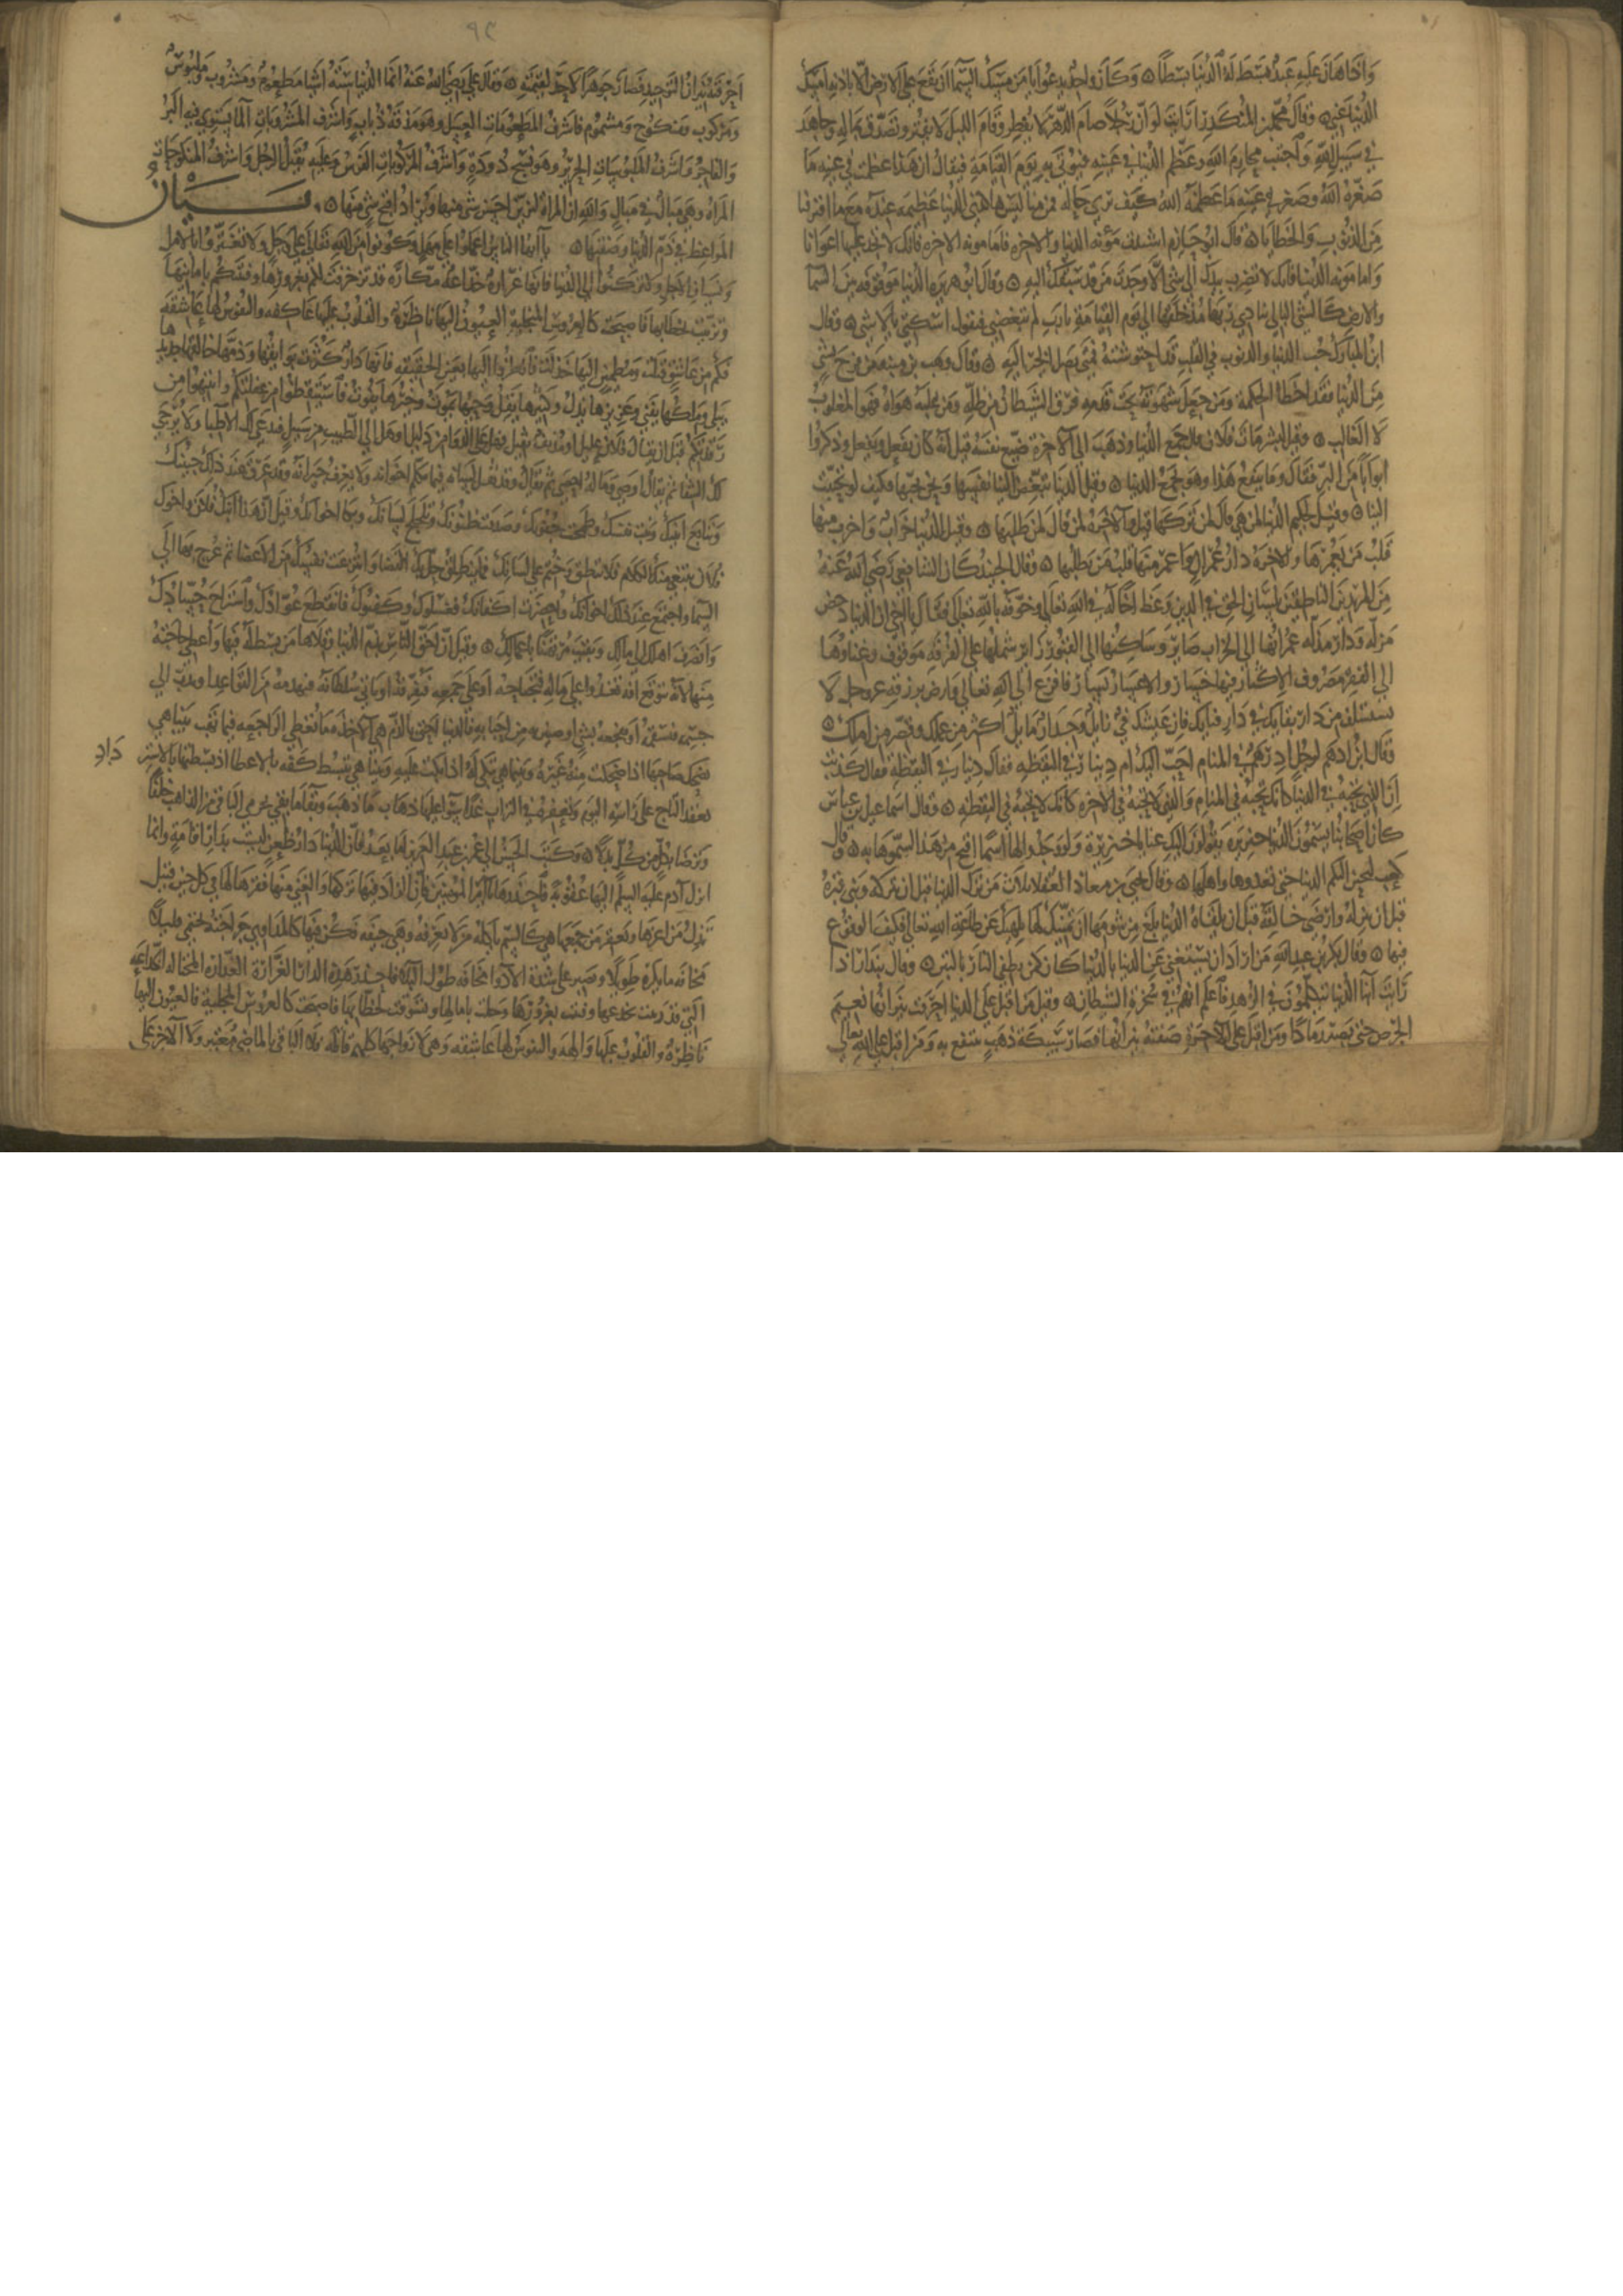 وَاذا هَانَ عَلَيهِ عَبْدٌ بَسَطَ لَهُ الدُنيَا بسْطًا ۞ وَكَانَ واحدٌ يدعُوا يَا مَن مُمسِكَ السَّمَا ان تقَعَ على الارض الّا باذنه امسِكْ
الدُنيَا عَنِّي ۞ وقالَ مُحَمَّد بن المُنْكَدِر ارَايت لَوانّ رَجُلًا صامَ الدّهر لا يُفطِر وَقَامَ الليل لا يفتُر وتصَدّق بماله وجاهَدَ
في سَبيل اللهِ وَاجتنب محارمَ اللهِ وعَظّم الدُنيا في عَينهِ فيُوتى بِه يَومَ القيَامَةِ فيقالُ ان هَذا عظمَت في عينه مَا
صَغّرَهُ اللهُ وصَغر في عَينهِ مَا عَظمَهُ اللهُ كيفَ ترى حَاله فمن منا ليسَ هاكذى الدُنيا عَظِيمَه عندَهُ مَع ما اقترفنا
مِنَ الذنُوبِ وَالخطايَا ۞ قالَ ابُو حَازم اشتدت مَؤنَه الدنيا والاخره فاما مونه الاخره فانك لا تجد عليها اعوَانا
وَاما مَونه الدُنيا فانك لا تضرِب بيَدِك الى شيءٍ الّا وَجدتَ من قد سَبقكَ اليهِ ۞ وقالَ ابُو هريره الدُنيا مَوقوفه بينَ السّما
والارضِ كالشنّ البالي تنادي ربّهَا مُنذ خَلقهَا الى يَوم القيامَةِ يا رَب لم تبغضني فيقول اسكتي يا لا شي ۞ وقال
ابنُ المبارَك حُب الدنيا والذنوب في القلبِ قد احتوشتهُ فمتى يَصل الخير اليَهِ ۞ وقالَ وهب بن منبه مَن فرح بشَي
مِنَ الدُنيا فقد اخطا الحِكمَةَ ومَن جَعلَ شهوَتهُ تحت قدميهِ فرق الشيطانُ من ظلّهِ ومَن غلبَ هوَاهُ فهَوَ المغلوبُ
لا الغالب ۞ وقيل لبشر مَاتَ فلانٌ فقال جمَعَ الدُنيا وذهَبَ الى الاخرة ضيّع نفسَهُ قيل انه كان يفعل ويفعل وذكروا
ابوَابًا مِنَ البِرّ فقالَ وَما ينفَعُ هَذا وهوَ يجمَعُ الدنيا ۞ وقيل الدُنيا تبغّض الينا نفسَها ونحن نحبّها فكيف لو تحبّبَت
الينا ۞ وقيل لحكيم الدُنيا لمن هي قال لمن تَركهَا قيل والاخرَهُ لمن قال لمن طلبهَا ۞ وقيل الدُنيا خرابٌ واخرب منها
قلبُ مَن يَعمُرهَا والاخرَهُ دارُ عُمرانٍ واعمر منها قلبُ مَن يطلبُها ۞ وقال الجنيد كان الشافعي رَضي الله عَنهُ
مِنَ المرِيدينَ الناطِقينَ بلسَانِ الحق في الدين وَعظ اخًا له في الله تعالى وخوّفهُ بالله تعالى فقال يا اخي ان الدنيا دحض
مَزِلّه وَدارُ مَذلّه عمرانها الى الخرَاب صَاير وسَاكِنُها الى القبُور زَاير شملها على الفُرقَه مَوقوف وغناؤهَا
الى الفقر مَصْروف الاكثار فيها اعسَار والاعسَار فيها يسَار فافزع الى اللهِ تعالى وارض برزق الله عز وجل لا
تستسلف من دار بقايك في دار فنايك فان عَيشَك فيءٌ زايل وجدارٌ مايل اكثر من عملك وقصّر من امَلك ۞
وقال ابن ادهم لرجُل ادِرهمٌ في المنام احبّ اليك ام دينارٌ في اليقظه فقال دينارٌ في اليقظة فقال كذبت
لانّ الذي تحبّهُ في الدُنيا كانك تحبّه في المنام والذي لا تحبّهُ في الاخره كانك لا تحبّهُ في اليقظه ۞ وقال اسماعيل بن عياش
كان اصحَابنا يسمّونَ الدُنيا خنزيرَه يقولونَ اليكِ عنا يا خنزيرَة وَلو وَجَدوا لها اسمًا اقبح من هَذا لسَمّوها به ۞ وقال
كعب لتحبّن اليكم الدنيا حتى تعبدوها واهلها ۞ وقال يحيى بن معاذ العُقلا ثلاث مَن ترك الدنيا قبل ان تتركه وبنى قبرهُ
قبل ان يدخلهُ وارضَى خالقهُ قبل ان يلقاهُ الدُنيا بلغَ من شومهَا ان تمنّيكَ لهَا يُلهيك عَن طاعَةِ الله تعالى فكيف الوقوع
فيها ۞ وقال بكر بن عبد اللهِ مَن ارادَ ان يستغني عن الدنيا بالدُنيا كان كمن يطفي النارَ بالتبن ۞ وقال بندار اذا
رَايتَ ابنا الدُنيا يتكلمُونَ في الزهد فاعلم انهمُ في سُخرَةِ الشيطان ۞ وقيل من اقبل على الدُنيا احرقته نيرَانها نعيم
الحرص حتى يصير رمَادًا ومن اقبل على الاخرة صَفتهُ نيرَانها فصَار سَبيكة ذهَبٍ ينتفع به وَمَن اقبل على الله تعالى
٩٤
احرَقتهُ نيرَانُ التوحيد فصَارَ جَوهَرًا لا حَدّ لقيمَتهِ ۞ وقال علي رَضي اللهُ عَنهُ انما الدُنيا سِتهُ اشيا مَطعومٌ ومشرُوب وَملبُوسٌ
وَمركوب ومَنكوح ومشموم فاشرَف المطعُومَات العسَل وهوَ مَذقةُ ذُبابٍ واشرَف المشرُوباتِ الما يَستوي فيهِ البَرُ
والفاجرُ واشرَفُ الملبُوسَاتِ الحريرُ وهو نسج دُودَةٍ واشرَفُ المركُوبَاتِ الفرَسُ وعليهِ يُقتلُ الرجُل واشرَفُ المنكوحَاتِ
المراهُ وهي مَبالٌ في مَبالٍ وَاللهِ ان المراهَ لتزيّن احسن شي منها ويُرادُ اقبح شي منها ۞ بيَانُ
المَواعظ في ذمّ الدُنيا وصفتِها ۞ يا ايّها الناسُ اعمَلوا على مَهل وكونوا مِنَ اللهِ تعالى على وجَل ولا تغترّوا بالامل
ونسيَان الاجل ولا تركنوُا الى الدنيا فانها غرّارةٌ خدّاعة مكّارَه قد تزخرَفت لكم بغرورها وفتنتكم بامانيها
وتزيّنت لخطابِها فاصبحَت كالعروس المجلية العيونُ اليهَا ناظرَهُ والقلُوبُ عليها عَاكفه والنفوس لهَا عَاشقه
فكم من عَاشقٍ قتلت ومُطمين اليها خذلت فانظرُوا اليها بعين الحقيقة فانها دارٌ كثرت بَوائقها وذمّها خالقها جديدُها
يبلى وملكُها يفنى وعزيزُها يَذِلّ وكثيرها يَقلُّ وحَيّها يمُوت وخيرهَا يفُوت فاستيقظوا من غفلتكم وانتبهُوا من
رَقدتكم قبل ان يقالَ فلانٌ عليل او مُدنفٌ ثقيل فهل على الدوا من دليل او هَل الى الطبيب من سَبيل فتدعى لك الاطبا ولا يُرجى
لك الشفا ثم يقال اوصى ومالهُ احصى ثم يقال قد ثقل لسَانه فما يكلم اخوانه ولا يعرفُ جيرانه وقد عَرِقَ عند ذلك جبينُك
وتتابع انينك وثبت يقينك وطمحَت جفونكَ وصَدقت ظنُونكَ وتلجلج لسَانكَ وبكا اخوانك وقيل لك هَذا ابنكَ فلان واخوك
فلانٌ ومُنعت منَ الكلام فلا تنطق وختم على لسَانكَ فلا ينطلق ثم حَلّ بك القضا وانتزعَت نفسُكَ مِنَ الاعضا ثم عُرج بها الى
السّما واجتمَعَ عند ذلكَ اخوانكَ واحضرَت اكفانكَ فغسّلوكَ وكفنوكَ فانقطع عوّادُكَ واستراحَ حُسّادُك
وانصَرفَ اهلكَ الى مالكَ وبقيتَ مُرتهنًا باعمَالك ۞ وقيل انّ احقّ الناسِ بذمّ الدنيا وقلاها مَن بُسط لهُ فيها وَاعطى حاجتهُ
منهَا لانهُ يتوقع افه تغدُوا على مَالِهِ فتجتاحهُ اوعَلى جَمعِه فتفرّقهُ او تاتي سُلطانهُ فيهدمهُ منَ القواعِد او تدبّ الى
جسمه فتسقمهُ او تفجعهُ بشيءٍ هو ضنين به من احبَابه فالدُنيا احق بالذّم هي الاخذة ما تُعطي الراجعَه فيما تهَب بينا هي
تُضحِك صَاحبهَا اذ اضحكت منهُ غَيرَهُ وبينا هي تبكي لهُ اذ ابكَت عليهِ وبينا هي تبسُط كفّهُ بالاعطا اذ بَسَطَتها بالاسترداد
تعقد التاج على رَاسِهِ اليَوم وتُعفّرهُ في الترَابِ غدًا سَوَا عليها ذهابُ مَا ذهَبَ وبقا ما بقي تجد في الباقي من الذاهب خلفًا
وترضى بكُلٍّ مِن كُلٍّ بدَلًا ۞ وكتبَ الحسَن الى عُمَر بن عبد العزيز اما بَعدُ فانّ الدُنيا دارُ ظعنٍ ليسَت بدَارِ اقامَةٍ وانما
انزل آدم عليه السلم اليهَا عُقُوبَةً فاحذرها يا اميرَ المومنين فانّ الزادَ منهَا تركها والغنى منهَا فقرها لهَا في كل حين قتيل
تُذِلّ مَن اعزّها وتفقر مَن جمعَها هي كالسّم ياكلهُ مَن لا يَعرفهُ وهي حتفه فكُن فيها كالمدَاوي جرَاحَتهُ يحتمي قليلًا
مخافه ما يكرَهُ طويلًا ويصبر على شدّة الادوا مخافَه طول البَلا فاحذر هَذِه الدارَ الغرّارَة الغدّارَه المختالهَ الخدّاعَه
التي قد زينت بخدعِها وفتنت بغرُورِها وحلت بامالها وتشوّقت لخطّابهَا فاصبحَت كالعروسِ المجليةِ فالعُيُون اليها
ناظرَهُ والقلوبُ عليهَا وَالهَه والنفوسُ لهَا عاشقه وهي لازواجها كلهم قاتله فلا الباقي بالماضي معتبرٌ ولا الاخر على